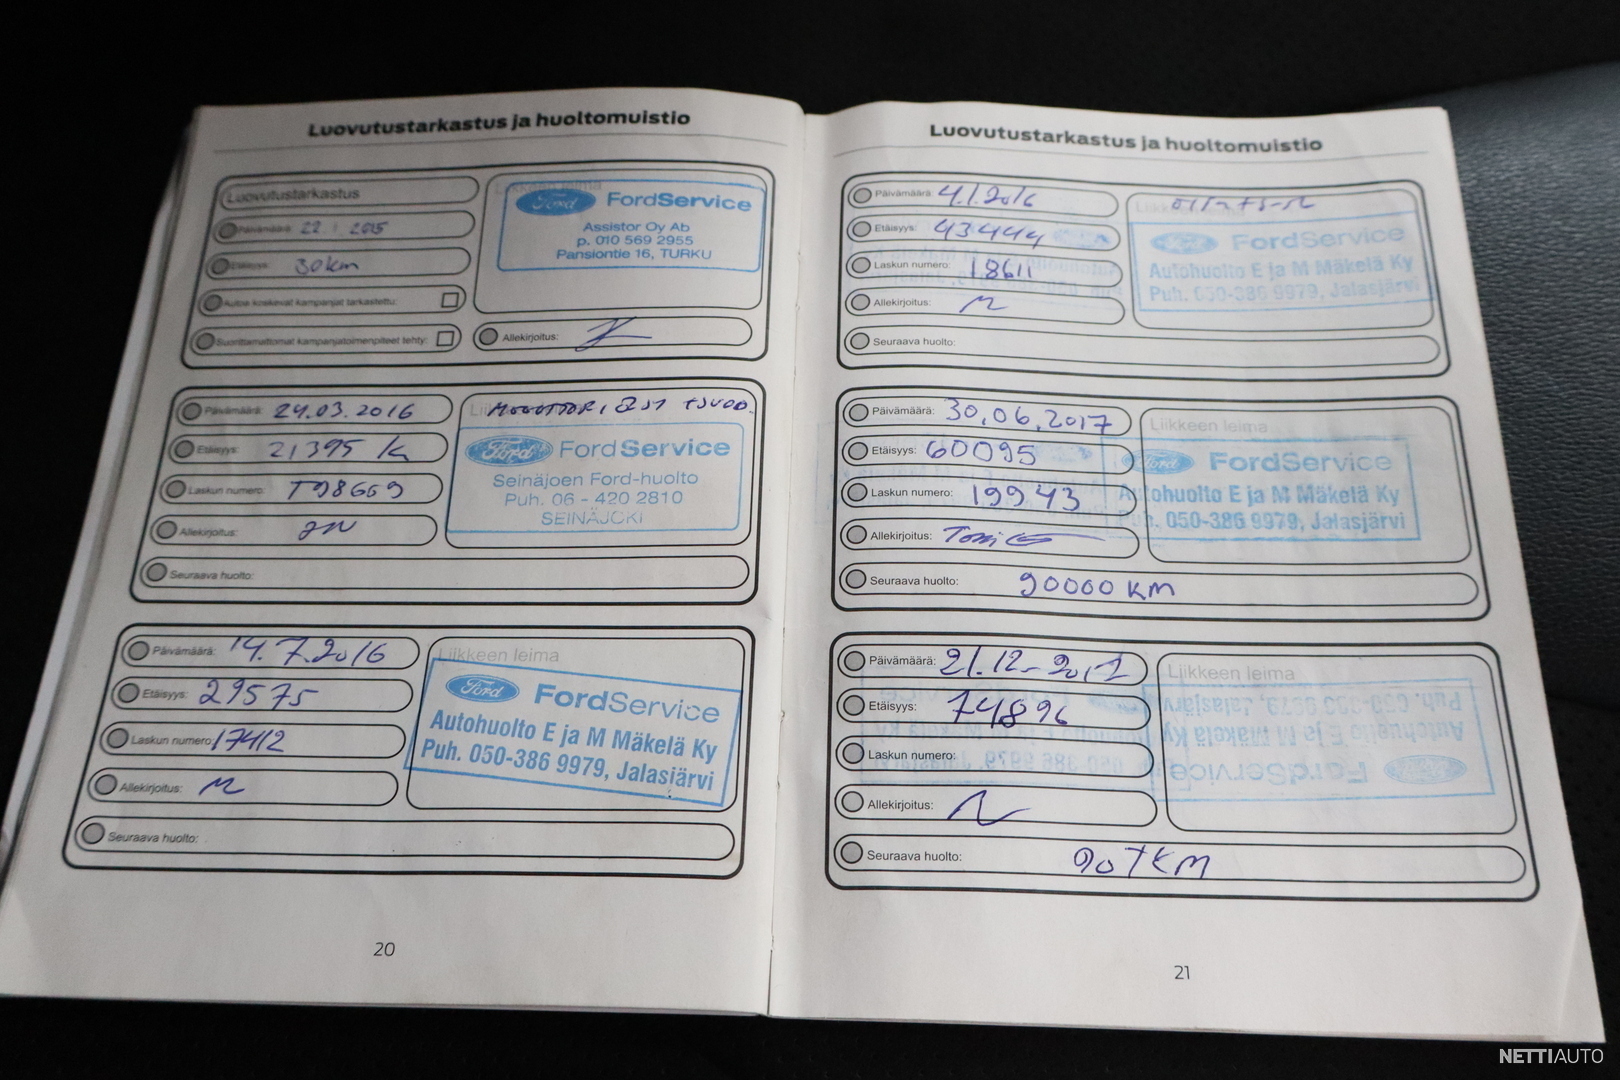 Luovutustarkastus ja huoltomuistio
Luovutustarkastus
Päivämäärä: 22. 1 2015
Etäisyys: 30km
Autoa koskevat kampanjat tarkastettu:
Suorittamattomat kampanjatoimenpiteet tehty:
Liikkeen leima
Ford FordService
Assistor Oy Ab
p. 010 569 2955
Pansiontie 16, TURKU
Allekirjoitus:
Päivämäärä: 24.03.2016
Etäisyys: 21395 k
Laskun numero: T98669
Allekirjoitus:
Seuraava huolto:
Ford FordService
Seinäjoen Ford-huolto
Puh. 06 - 420 2810
SEINÄJOKI
Päivämäärä: 14.7.2016
Etäisyys: 29575
Laskun numero: 17412
Allekirjoitus:
Seuraava huolto:
Liikkeen leima
Ford FordService
Autohuolto E ja M Mäkelä Ky
Puh. 050-386 9979, Jalasjärvi
20
Luovutustarkastus ja huoltomuistio
Päivämäärä: 4.1.2016
Etäisyys: 43444
Laskun numero: 18611
Allekirjoitus:
Seuraava huolto:
Ford FordService
Autohuolto E ja M Mäkelä Ky
Puh. 050-386 9979, Jalasjärvi
Päivämäärä: 30.06.2017
Etäisyys: 60095
Laskun numero: 19943
Allekirjoitus:
Seuraava huolto: 90000 KM
Liikkeen leima
Ford FordService
Autohuolto E ja M Mäkelä Ky
Puh. 050-386 9979, Jalasjärvi
Päivämäärä: 21.12-2017
Etäisyys: 74896
Laskun numero:
Allekirjoitus:
Seuraava huolto: 90 TKM
Liikkeen leima
FordService
Autohuolto E ja M Mäkelä Ky
Puh. 050-386 9979, Jalasjärvi
21
NETTIAUTO